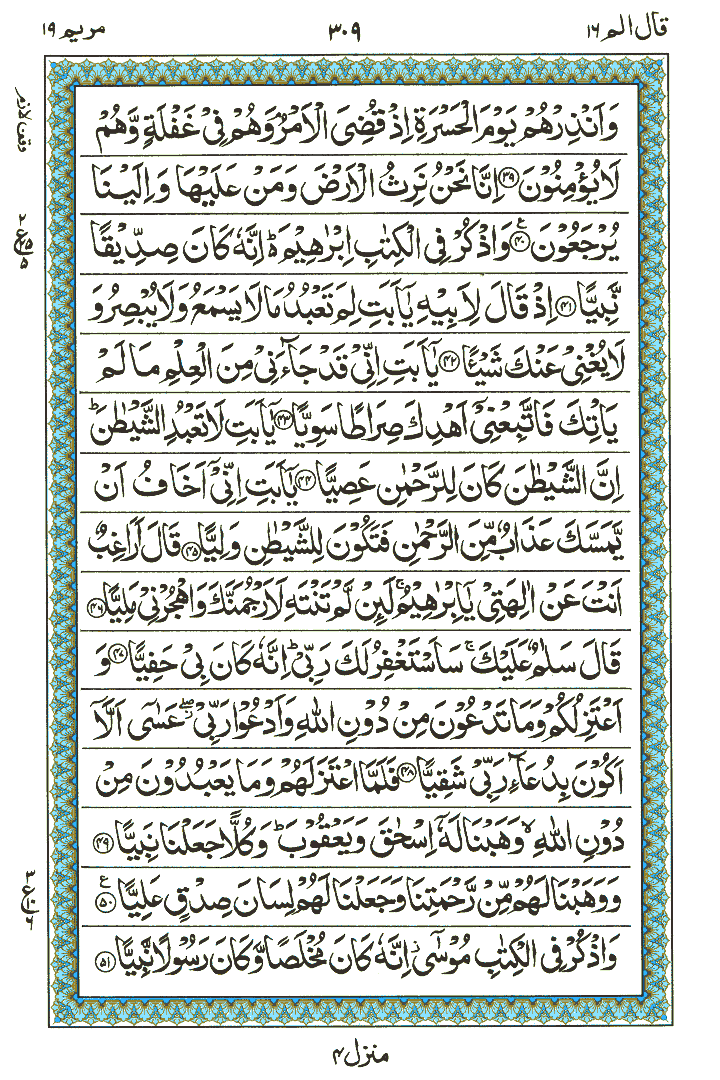 قال الم ١٦
٣٠٩
مريم ١٩
وَاَنْذِرْهُمْ يَوْمَ الْحَسْرَةِ اِذْ قُضِيَ الْاَمْرُ وَهُمْ فِيْ غَفْلَةٍ وَّهُمْ
لَا يُؤْمِنُوْنَ ﴿٣٩﴾ اِنَّا نَحْنُ نَرِثُ الْاَرْضَ وَمَنْ عَلَيْهَا وَاِلَيْنَا
يُرْجَعُوْنَ ﴿٤٠﴾ۧ وَاذْكُرْ فِي الْكِتٰبِ اِبْرٰهِيْمَ ؕ اِنَّهٗ كَانَ صِدِّيْقًا
نَّبِيًّا ﴿٤١﴾ اِذْ قَالَ لِاَبِيْهِ يٰۤاَبَتِ لِمَ تَعْبُدُ مَا لَا يَسْمَعُ وَلَا يُبْصِرُ وَ
لَا يُغْنِيْ عَنْكَ شَيْـًٔا ﴿٤٢﴾ يٰۤاَبَتِ اِنِّيْ قَدْ جَآءَنِيْ مِنَ الْعِلْمِ مَا لَمْ
يَاْتِكَ فَاتَّبِعْنِيْۤ اَهْدِكَ صِرَاطًا سَوِيًّا ﴿٤٣﴾ يٰۤاَبَتِ لَا تَعْبُدِ الشَّيْطٰنَ ؕ
اِنَّ الشَّيْطٰنَ كَانَ لِلرَّحْمٰنِ عَصِيًّا ﴿٤٤﴾ يٰۤاَبَتِ اِنِّيْۤ اَخَافُ اَنْ
يَّمَسَّكَ عَذَابٌ مِّنَ الرَّحْمٰنِ فَتَكُوْنَ لِلشَّيْطٰنِ وَلِيًّا ﴿٤٥﴾ قَالَ اَرَاغِبٌ
اَنْتَ عَنْ اٰلِهَتِيْ يٰۤاِبْرٰهِيْمُ ۚ لَئِنْ لَّمْ تَنْتَهِ لَاَرْجُمَنَّكَ وَاهْجُرْنِيْ مَلِيًّا ﴿٤٦﴾
قَالَ سَلٰمٌ عَلَيْكَ ۚ سَاَسْتَغْفِرُ لَكَ رَبِّيْ ؕ اِنَّهٗ كَانَ بِيْ حَفِيًّا ﴿٤٧﴾ وَ
اَعْتَزِلُكُمْ وَمَا تَدْعُوْنَ مِنْ دُوْنِ اللّٰهِ وَاَدْعُوْا رَبِّيْ ۖ عَسٰۤى اَلَّاۤ
اَكُوْنَ بِدُعَآءِ رَبِّيْ شَقِيًّا ﴿٤٨﴾ فَلَمَّا اعْتَزَلَهُمْ وَمَا يَعْبُدُوْنَ مِنْ
دُوْنِ اللّٰهِ ۙ وَهَبْنَا لَهٗۤ اِسْحٰقَ وَيَعْقُوْبَ ؕ وَكُلًّا جَعَلْنَا نَبِيًّا ﴿٤٩﴾
وَوَهَبْنَا لَهُمْ مِّنْ رَّحْمَتِنَا وَجَعَلْنَا لَهُمْ لِسَانَ صِدْقٍ عَلِيًّا ﴿٥٠﴾ۧ
وَاذْكُرْ فِي الْكِتٰبِ مُوْسٰۤى ؗ اِنَّهٗ كَانَ مُخْلَصًا وَّكَانَ رَسُوْلًا نَّبِيًّا ﴿٥١﴾
منزل ٤